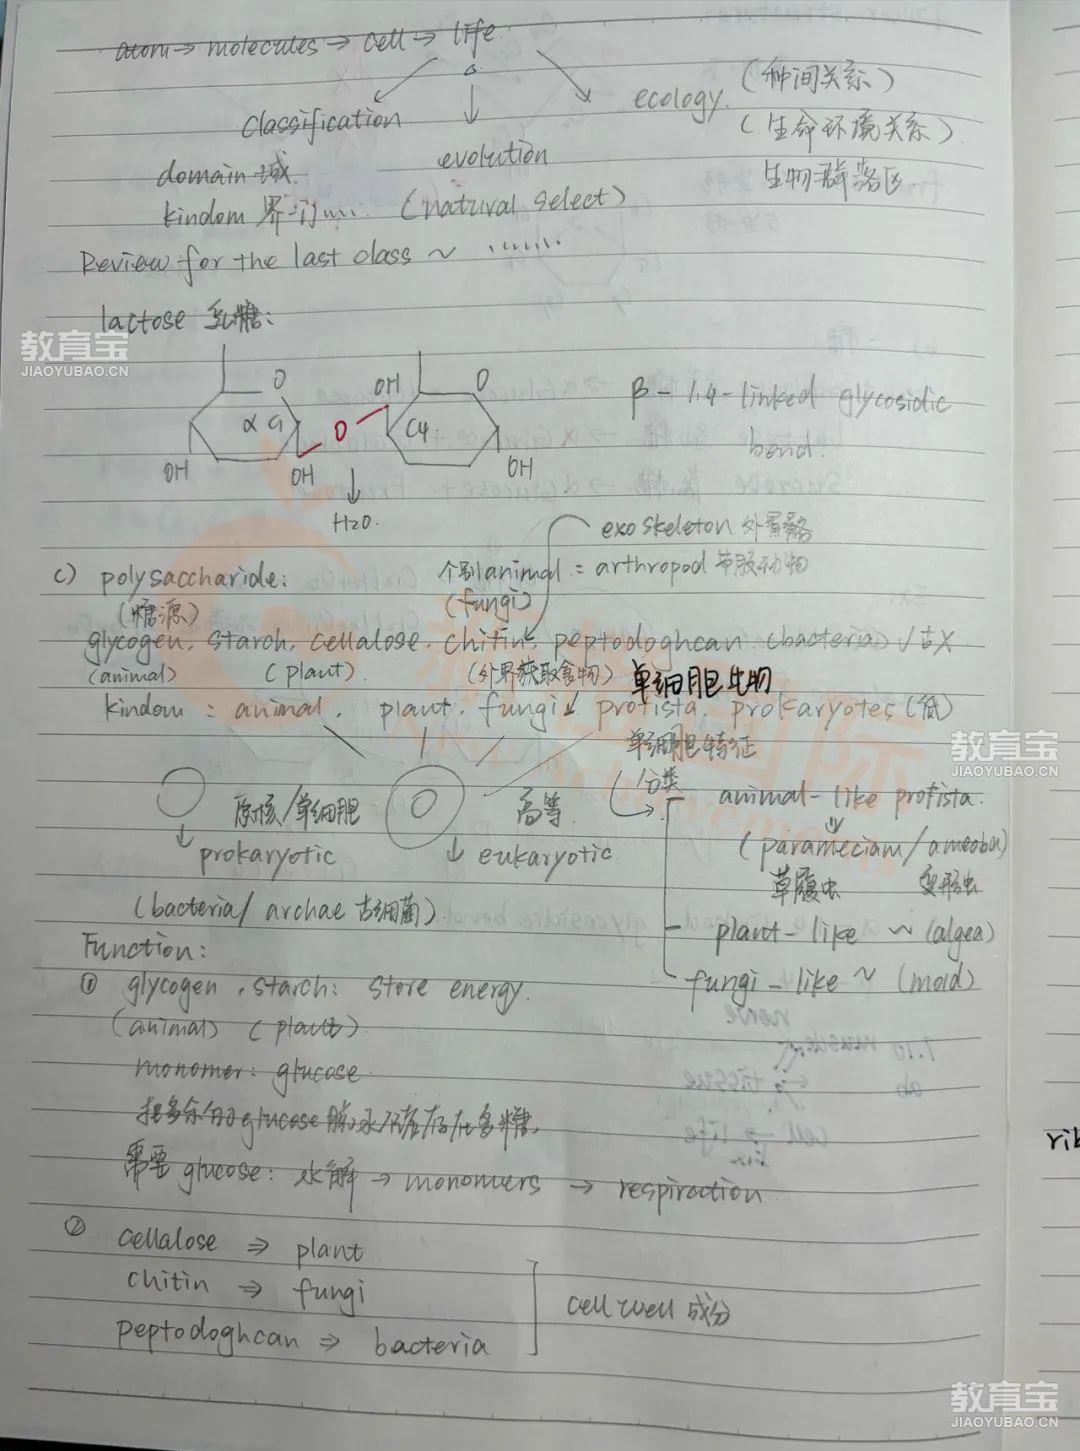 atom → molecules → cell → life.
classification
evolution
ecology.
(种间关系)
(生命环境关系)
生物群落区
domain 域.
kindom 界门…… (natural select)
Review for the last class ~ ……
lactose 乳糖:
O OH O
α C1 O C4
OH OH OH
H2O.
β-1.4-linked glycosidic
bond.
exoskeleton 外骨骼
c) polysaccharide: 个别animal = arthropod 节肢动物
(糖源) (fungi)
glycogen, starch, cellalose, chitin, peptodoghcan (bacteria) √ 古X
(animal) (plant). (外界获取食物) 单细胞生物
kindom = animal, plant, fungi, protista, prokaryotes (低)
单细胞特征
原核/单细胞
高等.
分类
animal-like protista.
prokaryotic
eukaryotic.
(parameciam/amoeba)
草履虫 变形虫
(bacteria/ archae 古细菌).
plant-like ~ (algea)
fungi-like ~ (mold)
Function:
① glycogen, starch: store energy.
(animal) (plant)
monomer: glucose
把多余的glucose脱水储存在多糖,
需要glucose: 水解 → monomers → respiraction
② cellalose ⇒ plant
chitin ⇒ fungi
peptodoghcan ⇒ bacteria
cell well 成分
rib
教育宝
JIAOYUBAO.CN
教育宝
JIAOYUBAO.CN
教育宝
JIAOYUBAO.CN